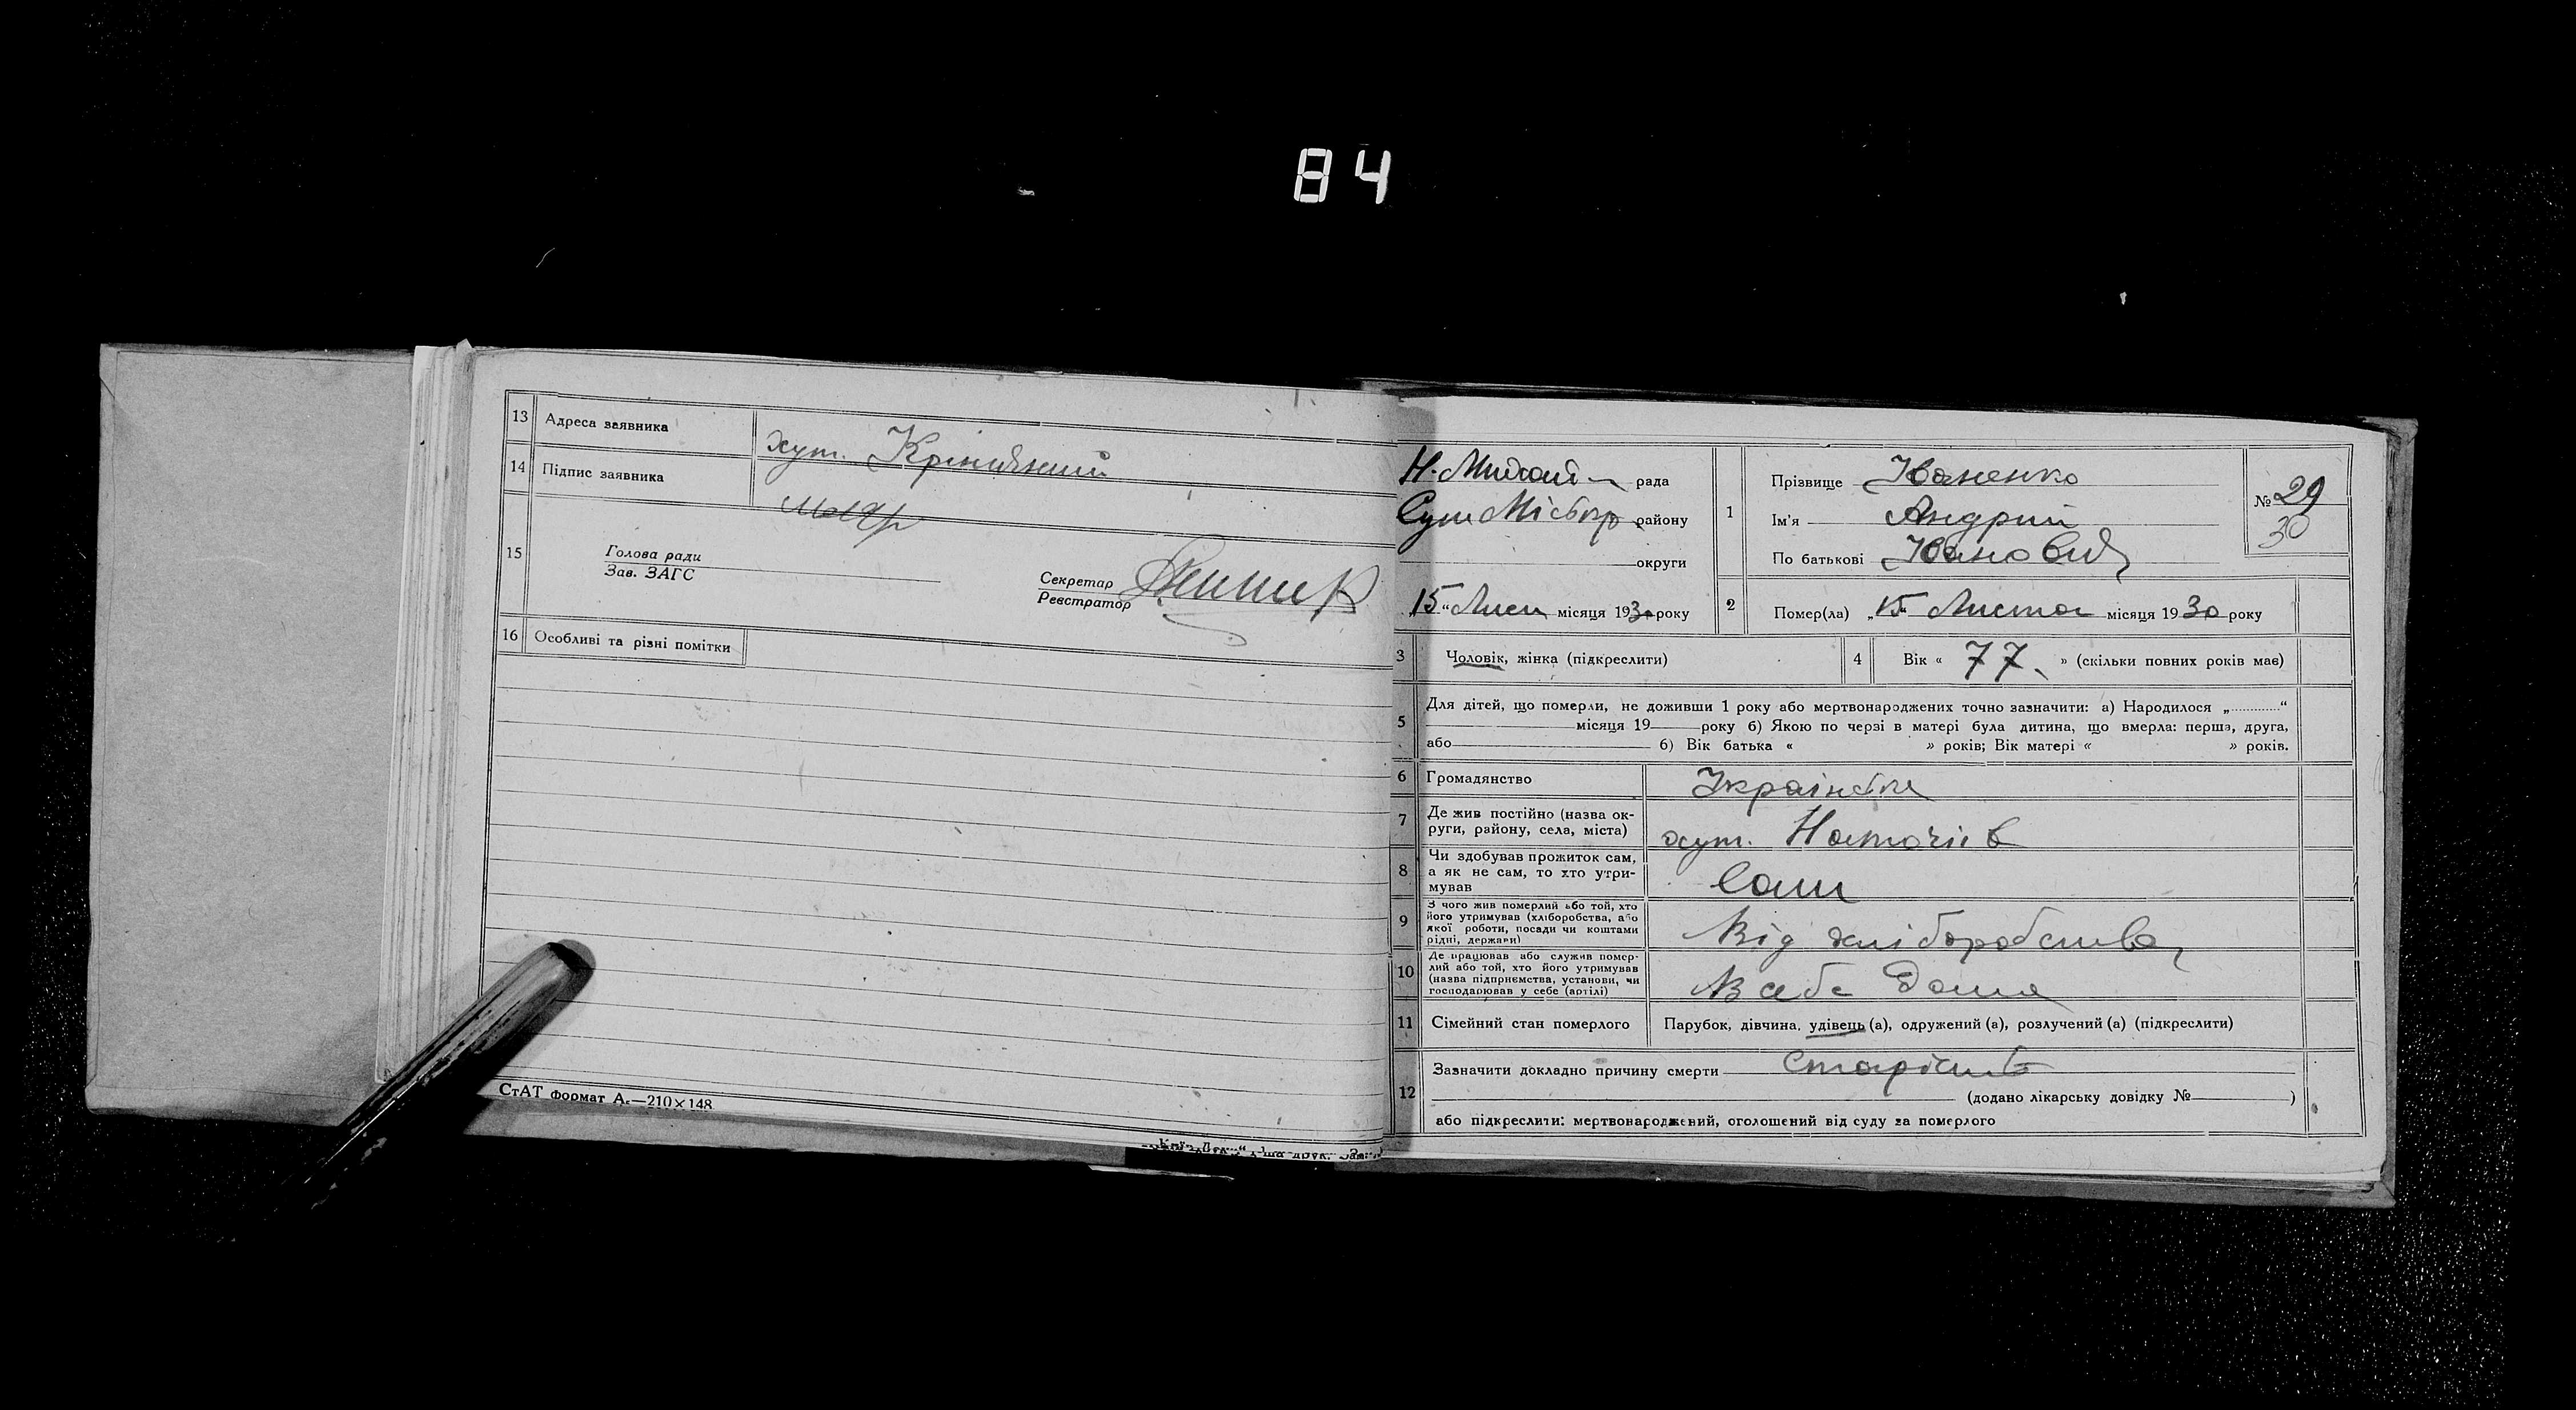 84
13 Адреса заявника хут. Крінични
14 Підпис заявника
15 Голова ради
Зав. ЗАГС
Секретар
Реєстратор
16 Особливі та різні помітки
СтАТ формат А₅—210×148
Н. Михай рада
Сум Місьпр району
округи
„15“ Лист місяця 1930 року
1 Прізвище Іваненко
Ім'я Андрій
По батькові Іванович
№ 29
30
2 Помер(ла) „15“ Листоп місяця 1930 року
3 Чоловік, жінка (підкреслити)
4 Вік « 77 » (скільки повних років має)
5 Для дітей, що померли, не доживши 1 року або мертвонароджених точно зазначити: а) Народилося „............“
місяця 19 року б) Якою по черзі в матері була дитина, що вмерла: перша, друга,
або б) Вік батька « » років; Вік матері « » років.
6 Громадянство
7 Де жив постійно (назва ок-
руги, району, села, міста) хут.
8 Чи здобував прожиток сам,
а як не сам, то хто утри-
мував Сам
9 З чого жив померлий або той, хто
його утримував (хліборобства, або
якої роботи, посади чи коштами
рідні, держави) Від хліборобства
10 Де працював або служив помер-
лий або той, хто його утримував
(назва підприємства, установи, чи
господарював у себе (артілі) В себе дома
11 Сімейний стан померлого Парубок, дівчина, удівець (а), одружений (а), розлучений (а) (підкреслити)
12 Зазначити докладно причину смерти старість
(додано лікарську довідку № )
або підкреслити: мертвонароджений, оголошений від суду за померлого